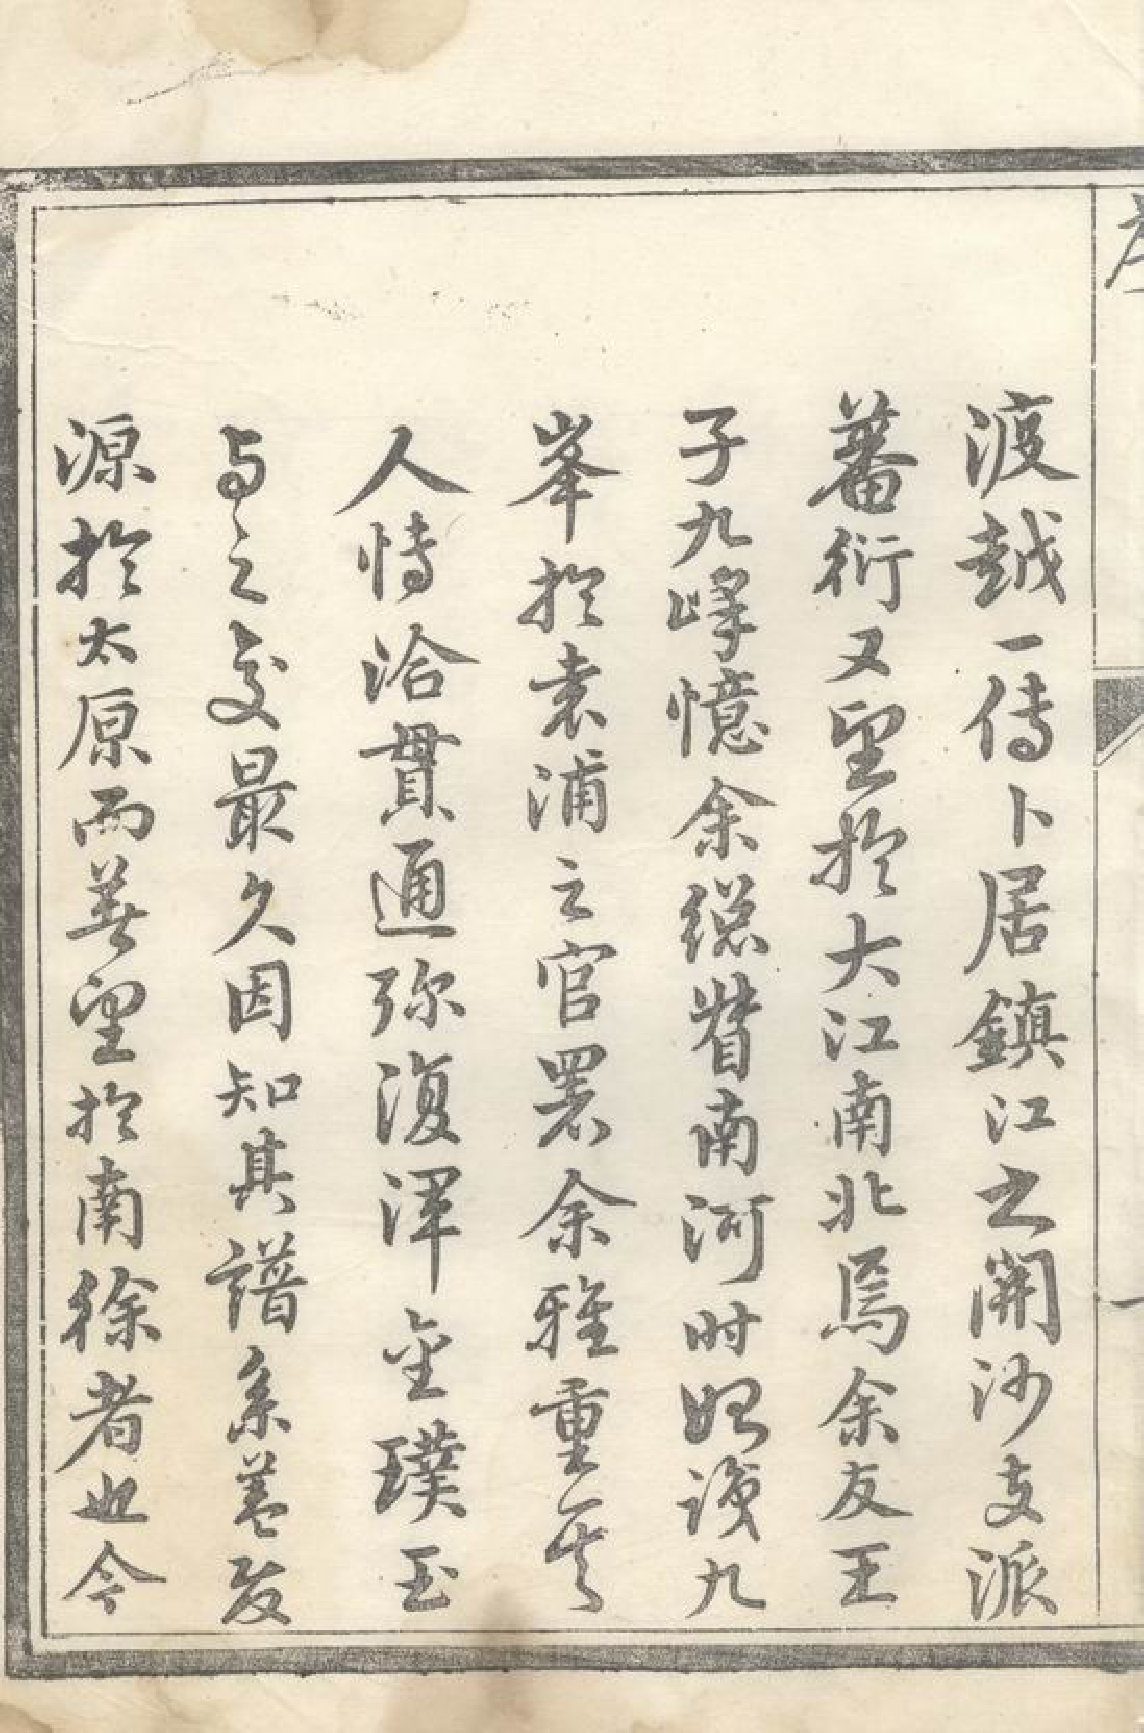 渡越一傳卜居鎮江之開沙支派
蕃衍又望於大江南北焉余友王
子九峰憶余總督南河时始識九
峯於袁浦之官署余雅重其
人恃洽貫通弥復渾金璞玉
与之交最久因知其譜系蓋发
源於太原而著望於南徐者也今